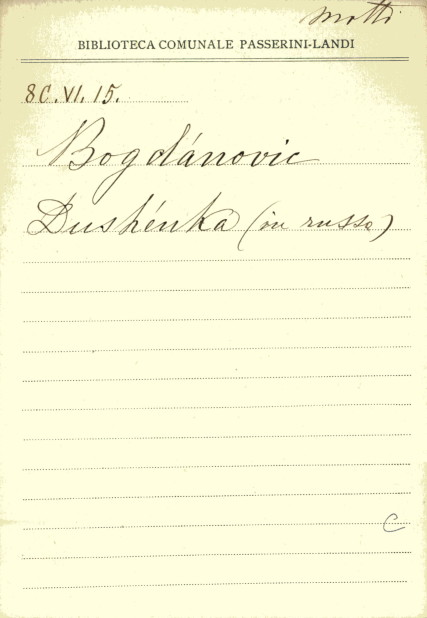 Motti
BIBLIOTECA COMUNALE PASSERINI-LANDI
8C.VI.15.
Bogdánovic
Dushénka (in russo)
C